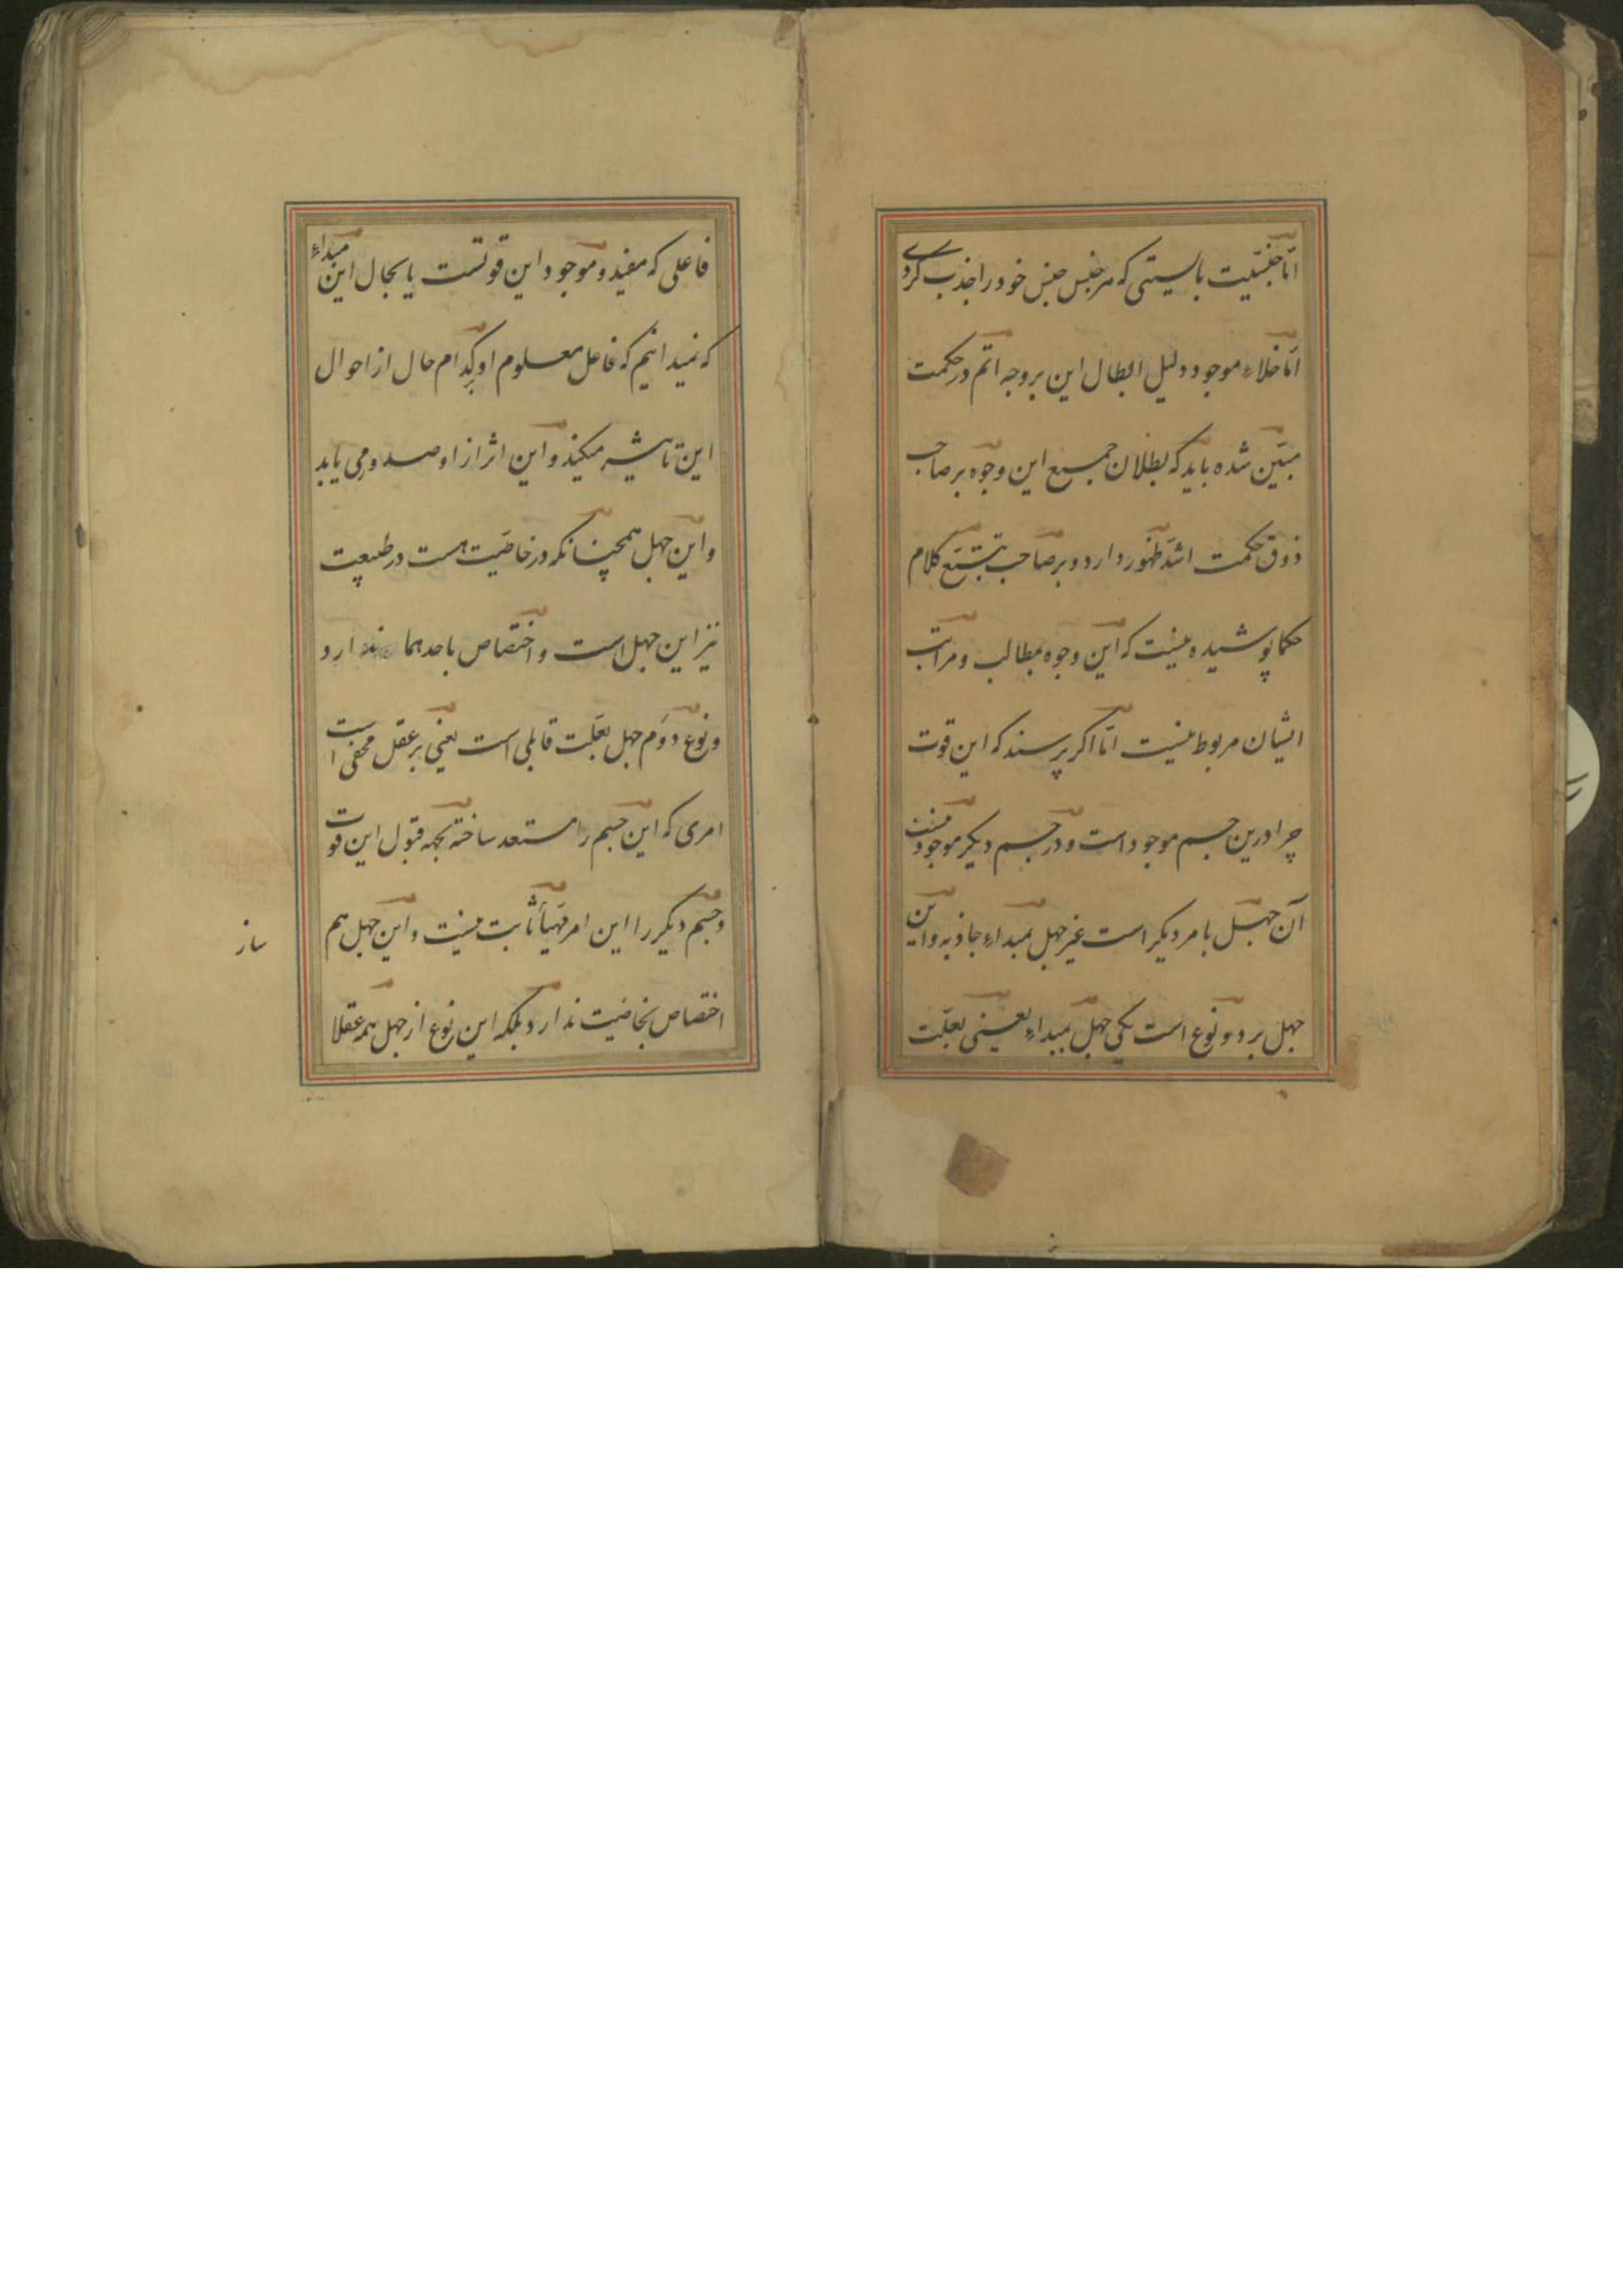 اما جنسیت بایستی که هر جنس جنس خود را جذب کردے
اما خلاء موجود دلیل ابطال این بر وجه اتم در حکمت
مبیّن شده باید که بطلان جمیع این وجوه بر صاحب
ذوق حکمت اشدّ ظهور دارد و بر صاحب تتبّع کلام
حکما پوشیده نیست که این وجوه بمطالب و مراتب
ایشان مربوط نیست امّا اکر پرسند که این قوت
چرا درین جسم موجود است و در جسم دیکر موجود نیست
آن جهل بامر دیکر است غیر جهل بمبداء جاذبه و این
جهل بر دو نوع است یکی جهل بمبداء یعنی بعلّت
فاعلی که مفید و موجود این قوتست یا بحال این مبداء
که نمیدانیم که فاعل معلوم او بکدام حال از احوال
این تاثیر میکند و این اثر از او صدور می یابد
و این جهل همچنانکه در خاصّیت هست در طبیعت
نیز این جهل است و اختصاص باحدهما ندارد
و نوع دوّم جهل بعلّت قابلی است یعنی بر عقل مخفی است
امری که این جسم را مستعد ساخته بجهه قبول این قوت
و جسم دیکر را این امر مهیأ ثابت نیست و این جهل هم
اختصاص بخاصیت ندارد بلکه این نوع از جهل همه عقلا
ساز